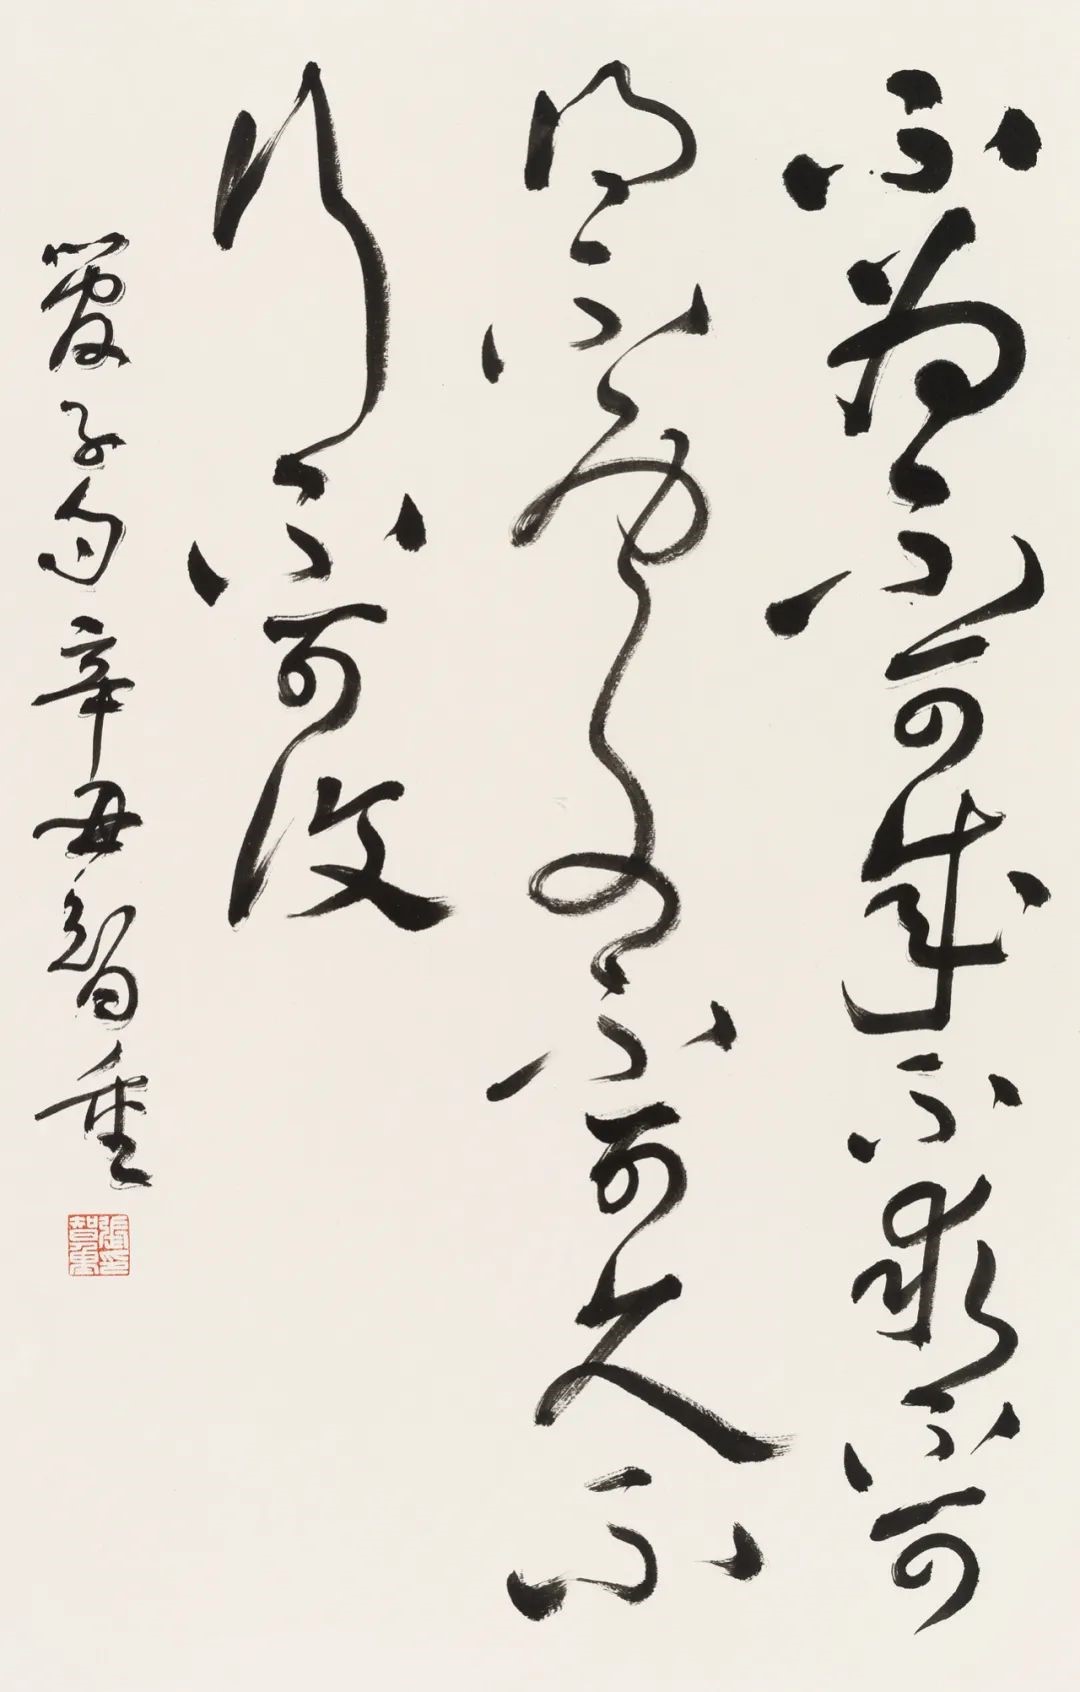 不為不可成不求不可
得不處不可久不
行不可復
管子句辛丑智重
張智重印